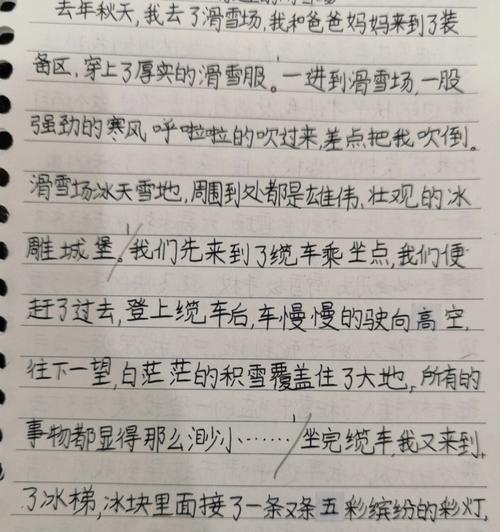 去年秋天,我去了滑雪场,我和爸爸妈妈来到了装
备区,穿上了厚实的滑雪服。一进到滑雪场,一股
强劲的寒风呼啦啦的吹过来,差点把我吹倒。
滑雪场冰天雪地,周围到处都是雄伟、壮观的冰
雕城堡。我们先来到了缆车乘坐点,我们便
赶了过去,登上缆车后,车慢慢的驶向高空,
往下一望,白茫茫的积雪覆盖住了大地,所有的
事物都显得那么渺小……坐完缆车,我又来到
了冰梯,冰块里面接了一条又条五彩缤纷的彩灯,